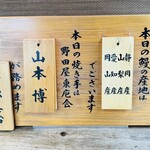 本日の鰻の産地は
静岡産
山梨産
愛知産
岡山産
でございます
本日の焼き手は
野田屋東庖会
山本 博
が務めます